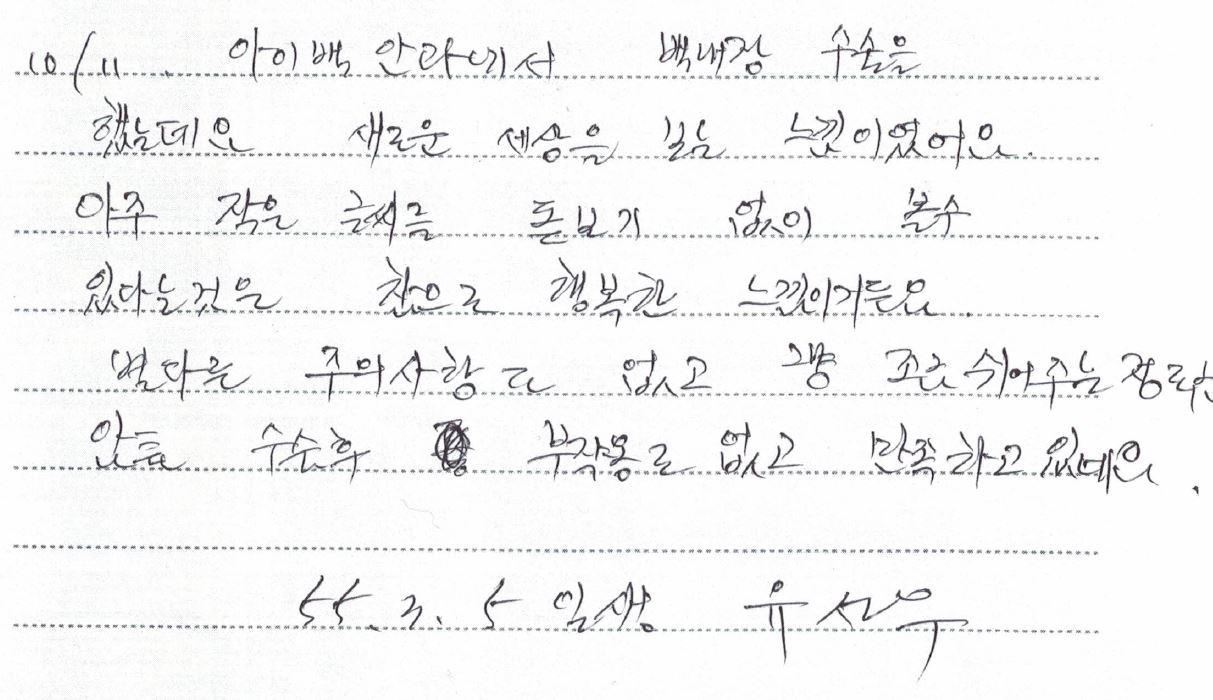 10/11. 아이백 안과에서 백내장 수술을
했는데요 새로운 세상을 보는 느낌이었어요.
아주 작은 글씨를 돋보기 없이 볼수
있다는것은 참으로 행복한 느낌이거든요.
별다른 주의사항도 없고 그냥 조금 쉬어주는 정도
암튼 수술후 부작용도 없고 만족하고 있네요.
55. 3. 5 일생 유선우